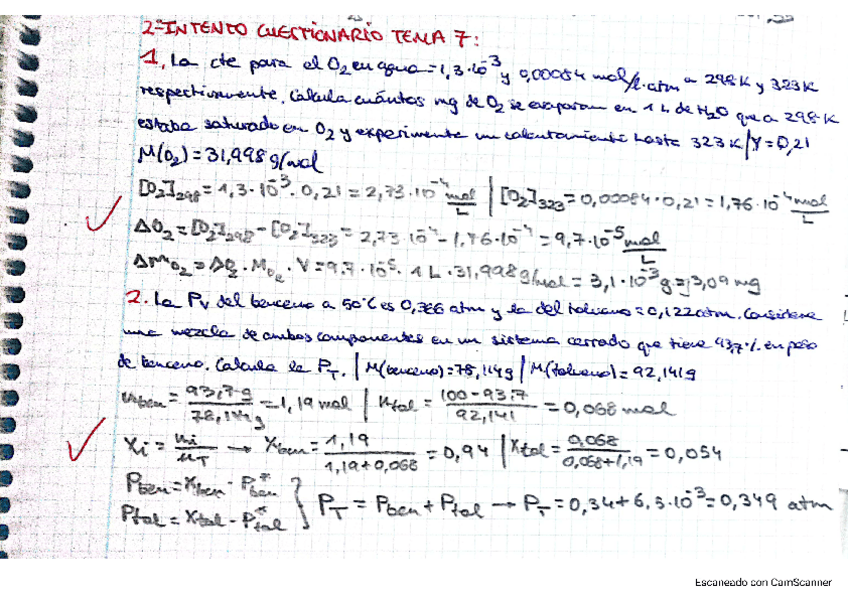 2º INTENTO CUESTIONARIO TEMA 7:
1. La cte para el O₂ en agua = 1,3·10⁻³ y 0,00084 mol/l·atm a 298K y 323K
respectivamente. Calcula cuántos mg de O₂ se evaporan en 1L de H₂O que a 298K
estaba saturado en O₂ y experimenta un calentamiento hasta 323K / Y=0,21
M(O₂) = 31,998 g/mol
[O₂]₂₉₈ = 1,3·10⁻³·0,21 = 2,73·10⁻⁴ mol/L | [O₂]₃₂₃ = 0,00084·0,21 = 1,76·10⁻⁴ mol/L
ΔO₂ = [O₂]₂₉₈ - [O₂]₃₂₃ = 2,73·10⁻⁴ - 1,76·10⁻⁴ = 9,7·10⁻⁵ mol/L
Δm O₂ = ΔO₂ · M O₂ · V = 9,7·10⁻⁵ · 1L · 31,998 g/mol = 3,1·10⁻³ g = 3,09 mg
2. La Pv del benceno a 50°C es 0,366 atm y la del tolueno = 0,122 atm. Considere
una mezcla de ambos componentes en un sistema cerrado que tiene 93,7% en peso
de benceno. Calcula la P_T. | M(benceno) = 78,114g | M(tolueno) = 92,141g
n ben = 93,7 g / 78,114 g = 1,19 mol | n tol = 100 - 93,7 / 92,141 = 0,068 mol
Xi = ni / n_T → X ben = 1,19 / 1,19 + 0,068 = 0,94 | X tol = 0,068 / 0,068 + 1,19 = 0,054
P ben = X ben · P* ben
P tol = X tol · P* tol } P_T = P ben + P tol → P_T = 0,34 + 6,5·10⁻³ = 0,349 atm
Escaneado con CamScanner